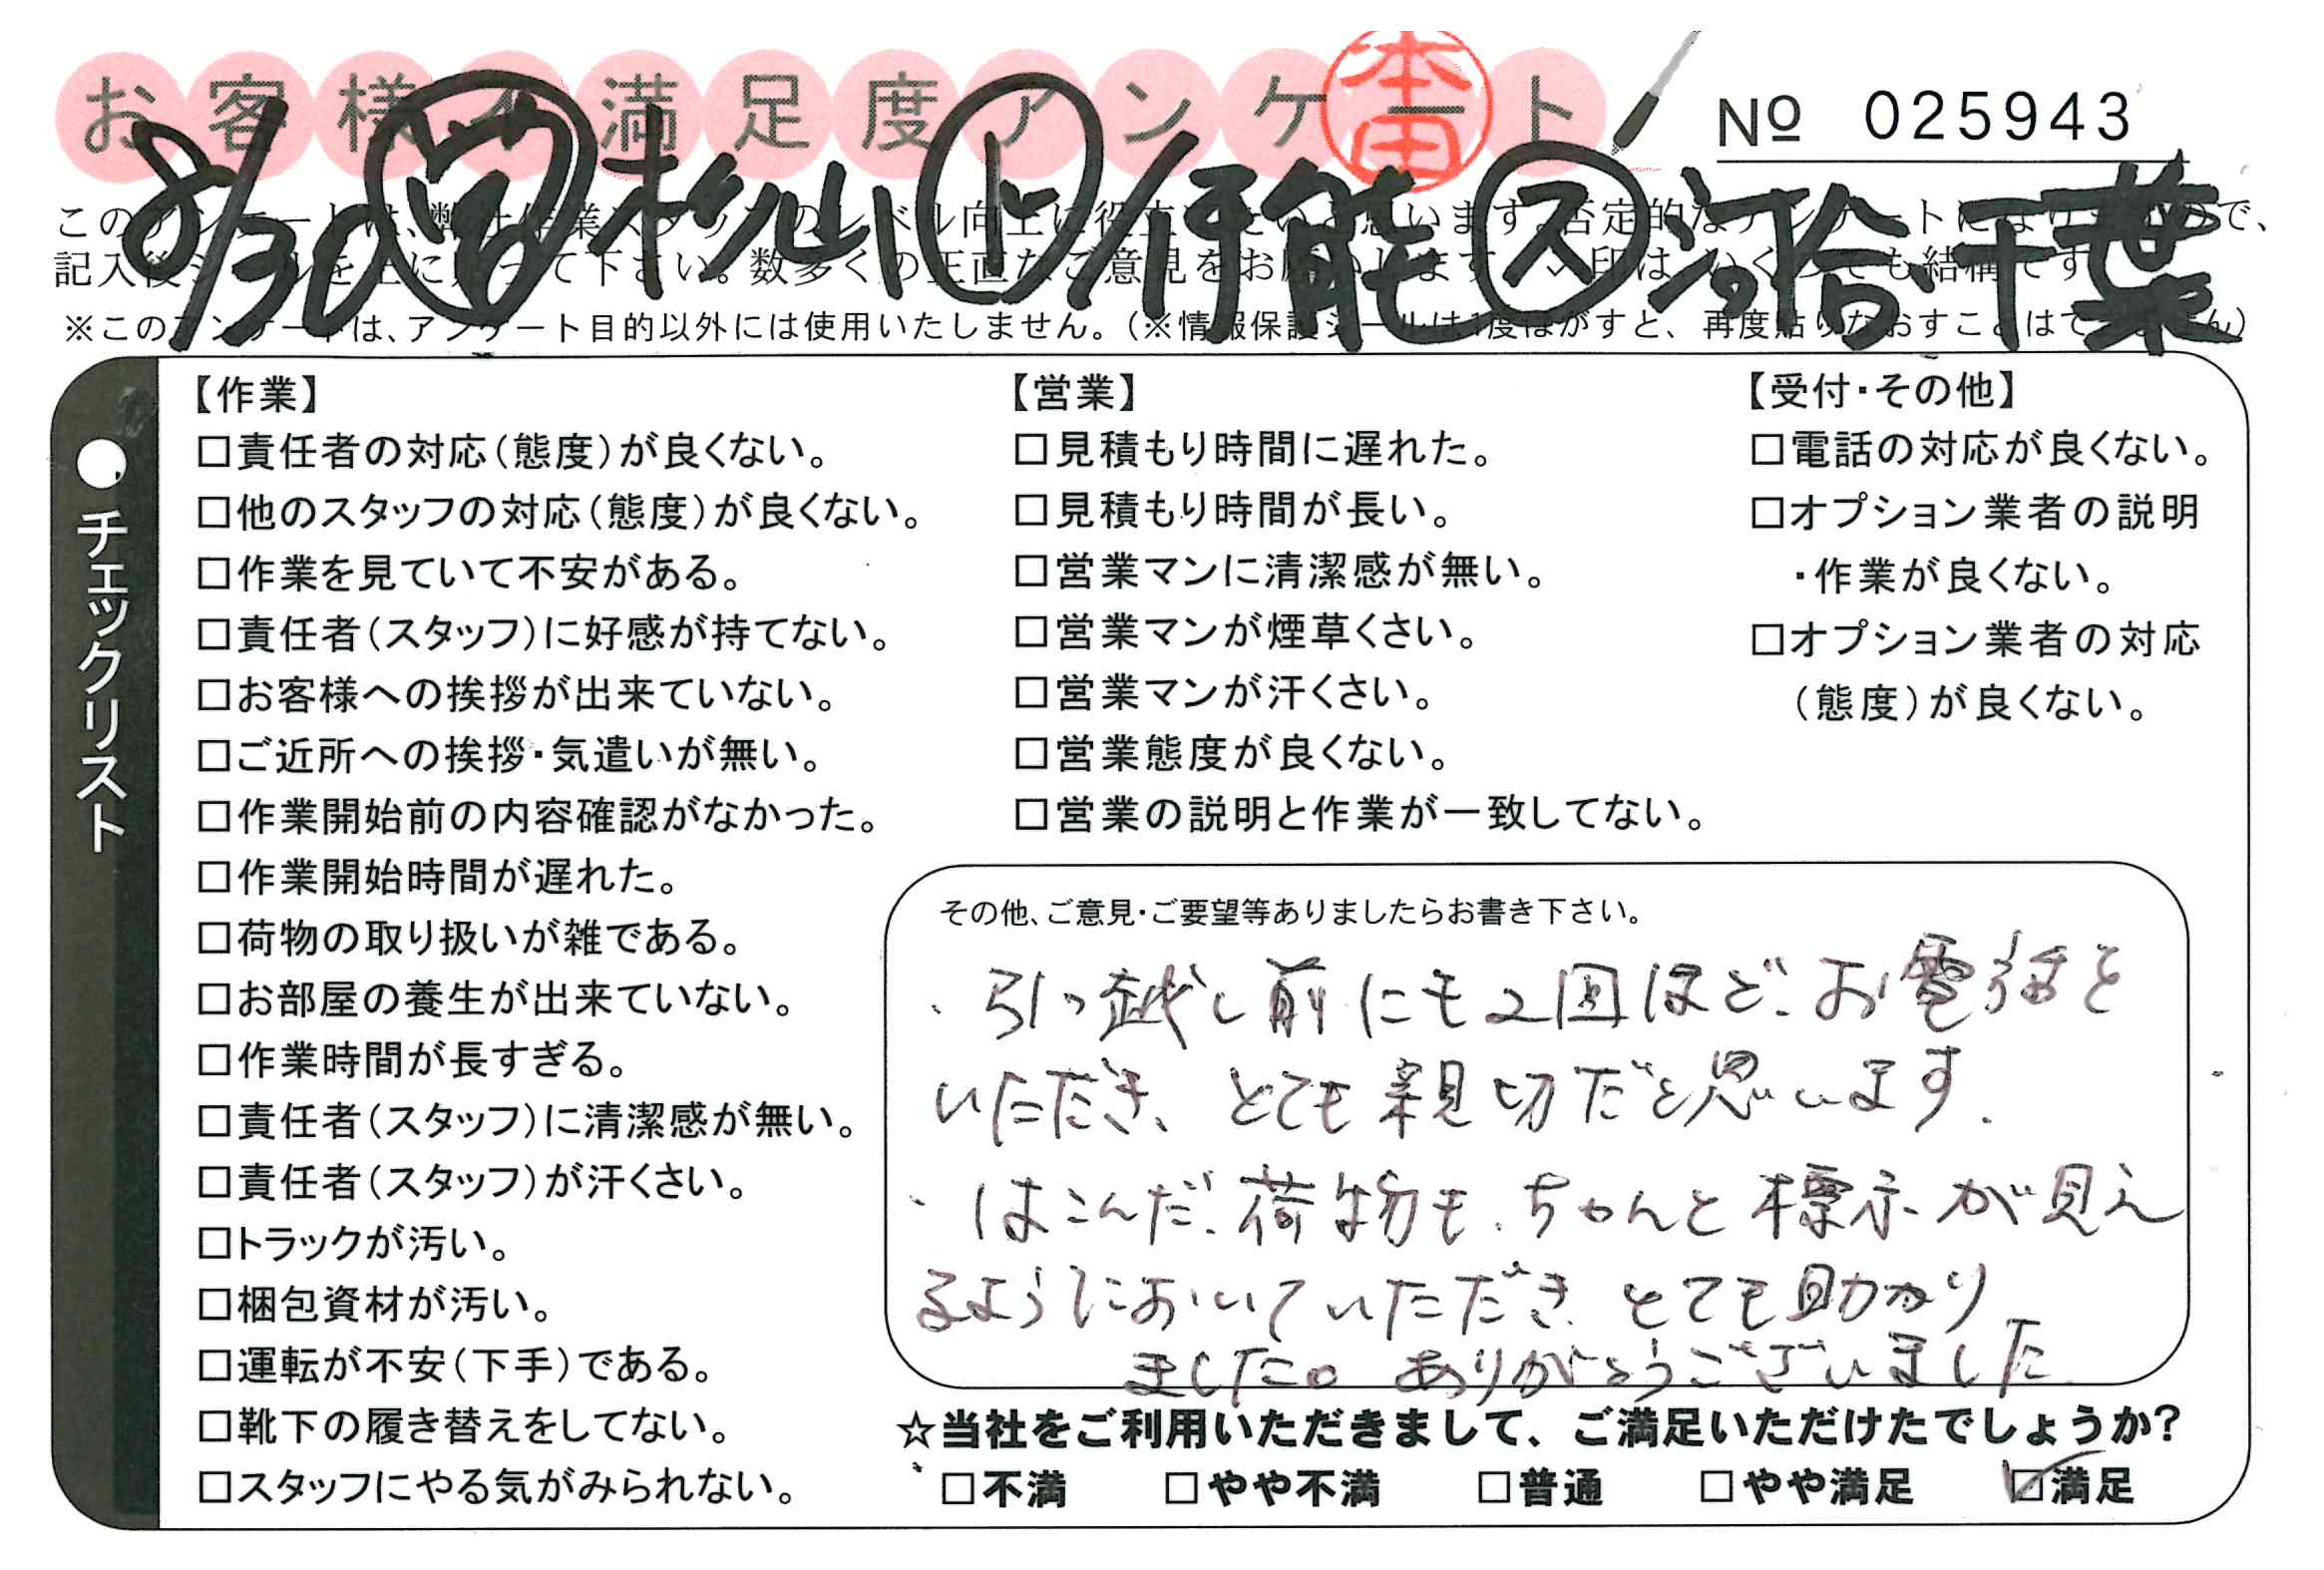 お客様不満足度アンケート
本田
No 025943
8/30 営 杉山 ト 伊能 ス 河合・千葉
記入後 下さい。数多くの正直なご意見をお願いします 印は いくつでも結構です
※このアンケートは、アンケート目的以外には使用いたしません。(※情報保護シールは1度はがすと、再度貼りなおすことはできません)
●チェックリスト
【作業】
□責任者の対応(態度)が良くない。
□他のスタッフの対応(態度)が良くない。
□作業を見ていて不安がある。
□責任者(スタッフ)に好感が持てない。
□お客様への挨拶が出来ていない。
□ご近所への挨拶・気遣いが無い。
□作業開始前の内容確認がなかった。
□作業開始時間が遅れた。
□荷物の取り扱いが雑である。
□お部屋の養生が出来ていない。
□作業時間が長すぎる。
□責任者(スタッフ)に清潔感が無い。
□責任者(スタッフ)が汗くさい。
□トラックが汚い。
□梱包資材が汚い。
□運転が不安(下手)である。
□靴下の履き替えをしてない。
□スタッフにやる気がみられない。
【営業】
□見積もり時間に遅れた。
□見積もり時間が長い。
□営業マンに清潔感が無い。
□営業マンが煙草くさい。
□営業マンが汗くさい。
□営業態度が良くない。
□営業の説明と作業が一致してない。
【受付・その他】
□電話の対応が良くない。
□オプション業者の説明
・作業が良くない。
□オプション業者の対応
(態度)が良くない。
その他、ご意見・ご要望等ありましたらお書き下さい。
・引っ越し前にも2回ほど、お電話を
いただき、とても親切だと思います.
・はこんだ、荷物も、ちゃんと標示が見え
るようにおいていただき とても助かり
ました。ありがとうございました
☆当社をご利用いただきまして、ご満足いただけたでしょうか?
□不満 □やや不満 □普通 □やや満足 ☑満足